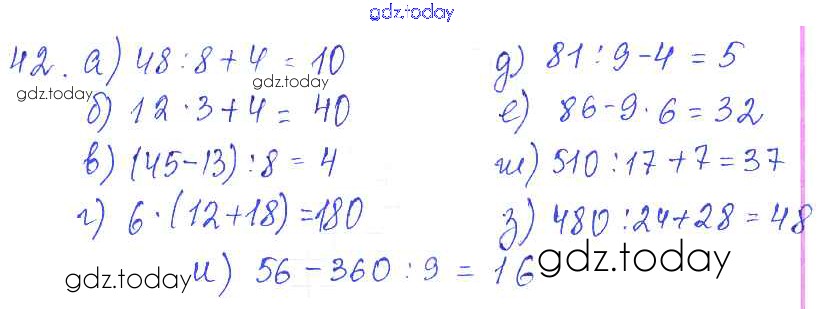 gdz.today
42. а) 48 : 8 + 4 = 10
д) 81 : 9 - 4 = 5
gdz.today
gdz.today
б) 12 · 3 + 4 = 40
е) 86 - 9 · 6 = 32
в) (45 - 13) : 8 = 4
ж) 510 : 17 + 7 = 37
г) 6 · (12 + 18) = 180
з) 480 : 24 + 28 = 48
и) 56 - 360 : 9 = 16
gdz.today
gdz.today